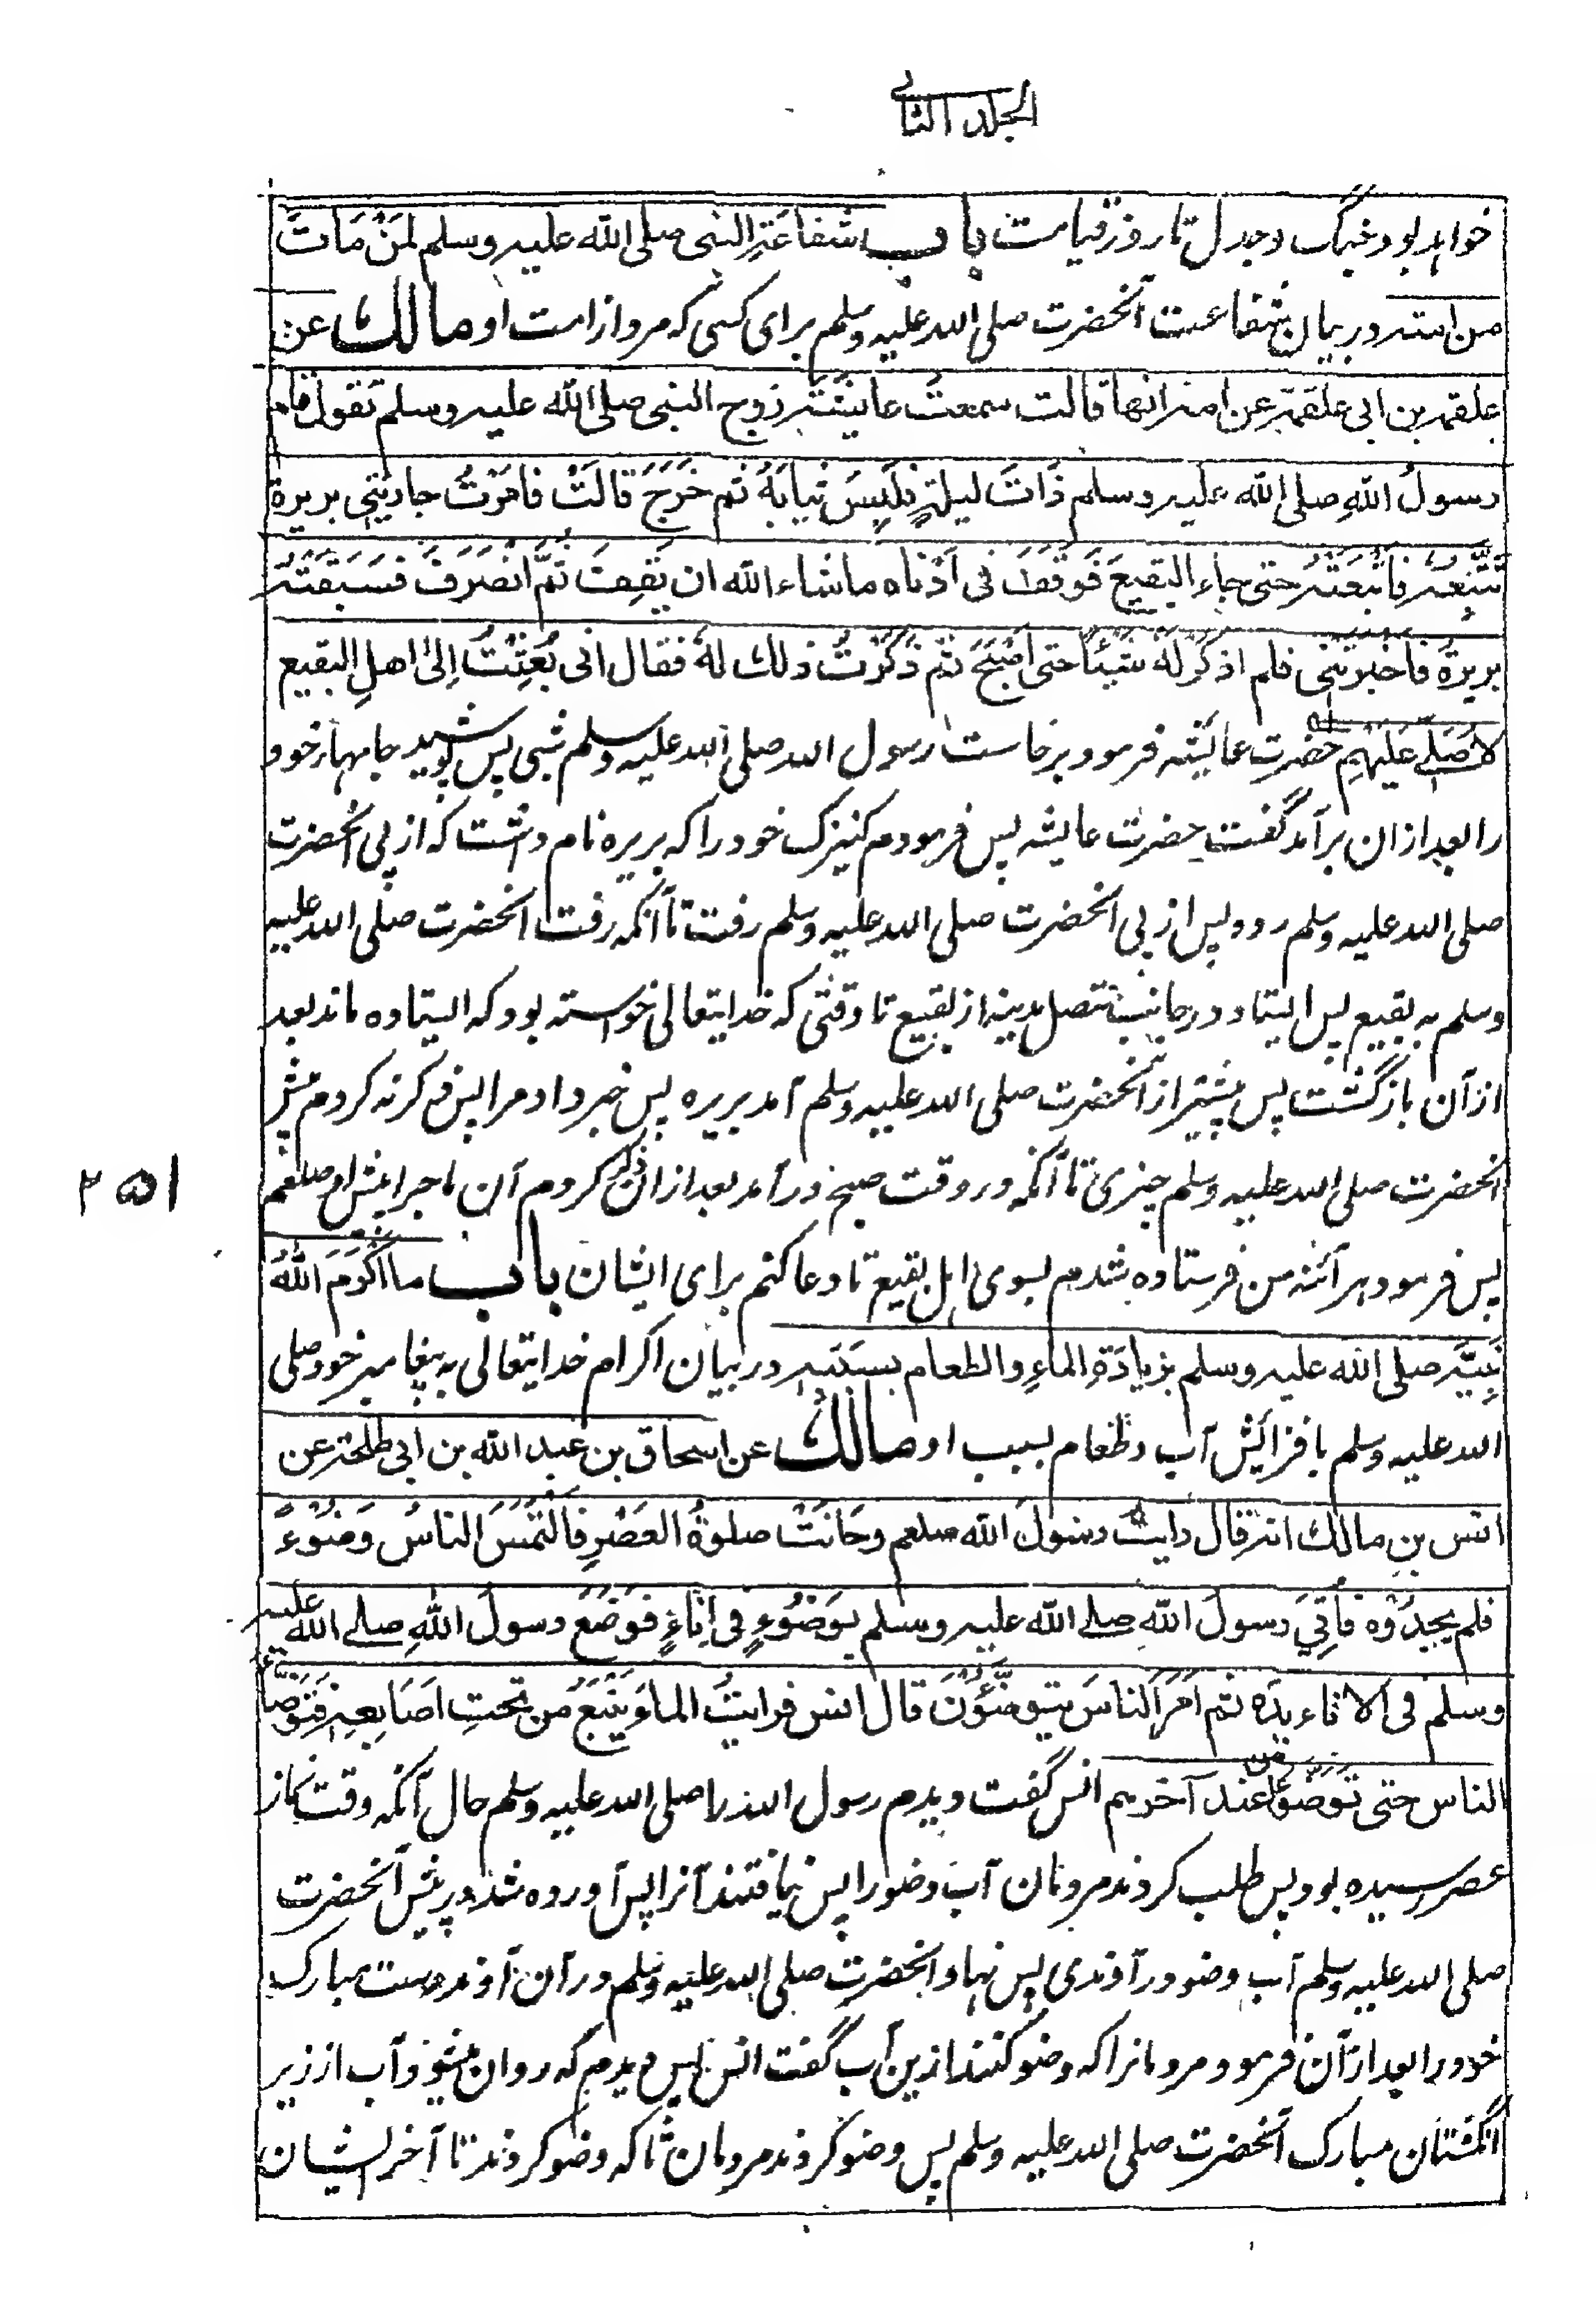 الجلد الثانی
خواهد بود و جنگ و جدل تا روز قیامت باب شفاعَةِ النبی صلی الله علیه وسلم لمَنْ مَاتَ
من امته در بیان شفاعت آنحضرت صلی الله علیه وسلم برای کسی که مرد از امت او مالك عن
علقمة بن ابی علقمة عن امه انها قالت سمعتُ عایشة زوج النبی صلی الله علیه وسلم تقول قام
رسولُ اللهِ صلی الله علیه وسلم ذَاتَ لیلةٍ فَلَبِسَ ثِیَابَهُ ثم خَرَجَ قالَتْ فامَرْتُ جاریتی بریرة
تَتْبَعُه فَاتَّبَعَتْه حتی جاء البقیعَ فَوَقَفَ فی اَدْناه ما شاء الله ان یَقِفَ ثُمَّ انصَرَفَ فَسَبَقَتْهُ
بریرةُ فاَخْبَرَتْنِی فلم اذکر لَهُ شَیْئًا حتی اَصْبَحَ ثم ذَکَرْتُ ذلك لهُ فقال انی بُعِثْتُ اِلیٰ اهلِ البقیع
لاُصَلِّے عَلَیْهِم حضرت عائشه فرمود برخاست رسول الله صلی الله علیه وسلم شبی پس پوشید جامهاے خود
را بعد ازان برآمد گفت حضرت عایشه پس فرمودم کنیزک خود را که بریره نام داشت که از پی آنحضرت
صلی الله علیه وسلم رود پس از پی آنحضرت صلی الله علیه وسلم رفت تا آنکه رفت آنحضرت صلی الله علیه
وسلم به بقیع پس ایستاد در جانب متصل مدینه از بقیع تا وقتی که خدایتعالی خواسته بود که ایستاده ماند بعد
ازآن بازگشت پس پیشتر از آنحضرت صلی الله علیه وسلم آمد بریره پس خبر داد مرا پس ذکر نه کردم پیش
آنحضرت صلی الله علیه وسلم چیزی تا آنکه در وقت صبح درآمد بعد ازان ذکر کردم آن ماجرا پیش او صلعم
پس فرمود هر آئنه من فرستاده شدم بسوی اهل بقیع تا دعا کنم برای ایشان باب ما اَکْرَمَ اللهُ
نَبِیَّه صلی الله علیه وسلم بزیادَةِ الماءِ والطعام بسَبَبِه در بیان اکرام خدایتعالی به پیغامبر خود صلی
الله علیه وسلم بافزایش آب وطعام بسبب او مالك عن اسحاق بن عبد الله بن ابی طلحة عن
انس بنِ مالك انه قال رایتُ رسولَ الله صلعم وحَانَتْ صلوةُ العَصْرِ فَالْتَمَسَ الناسُ وَضُوْءً
فلم یجِدُوْه فَاُتِیَ رسولُ اللهِ صلے الله علیه وسلم بِوَضُوْءٍ فی اِنَاءٍ فوَضَعَ رسولُ اللهِ صلے الله علیه
وسلم فی الاناء یدَه ثم اَمَرَ الناسَ یتوضَّئُوْنَ قال انس فرایتُ الماءَ یَنْبُعُ من تحتِ اصَابِعِهِ فَتَوَضَّأَ
الناس حتی تَوَضَّؤُا من عند آخرهم انس گفت دیدم رسول الله را صلی الله علیه وسلم حال آنکه وقت نماز
عصر رسیده بود پس طلب کردند مردمان آب وضو را پس نیافتند آنرا پس آورده شد در پیش آنحضرت
صلی الله علیه وسلم آب وضو در آوندی پس نهاد آنحضرت صلی الله علیه وسلم در آن آوند دست مبارک
خود را بعد ازآن فرمود مردمانرا که وضو کنند ازین آب گفت انس پس دیدم که روان میشود آب از زیر
انگشتان مبارک آنحضرت صلی الله علیه وسلم پس وضو کردند مردمان تا که وضو کردند تا آخر ایشان
۲۵۱